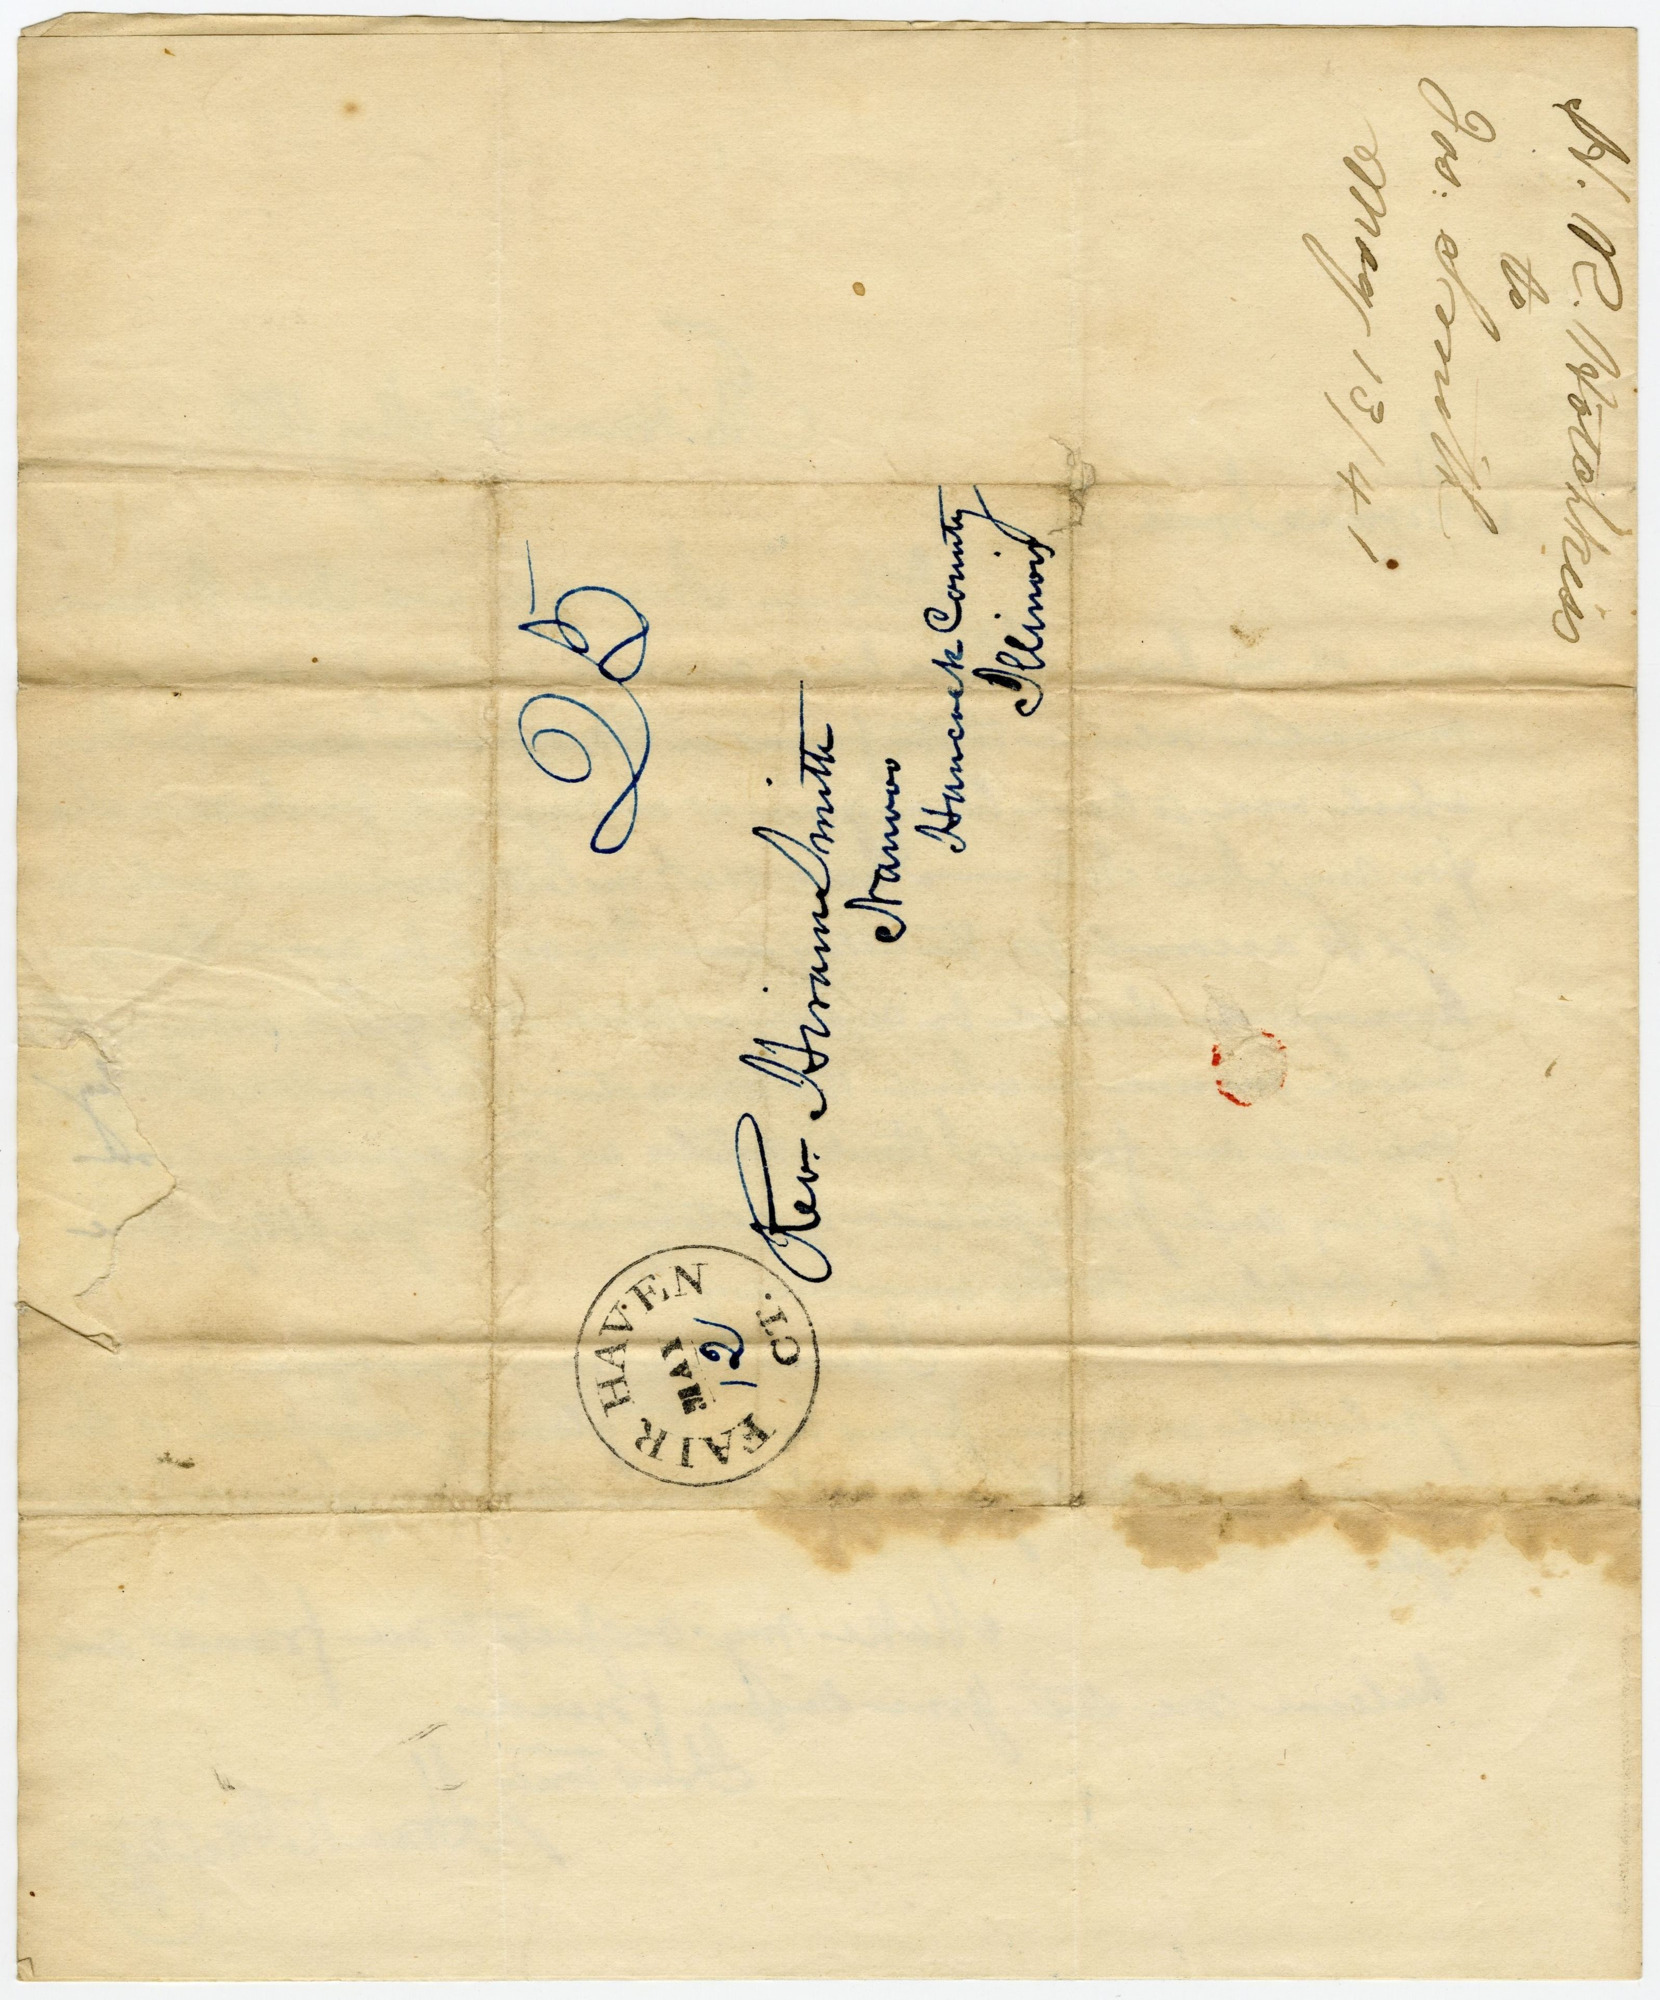 H. R. Hotchkiss
to
Jos: Smith
May 13/41
25
Rev. Hiram Smith
Nauvoo
Hancock County
Illinois
FAIR HAVEN
MAY
12
CT.